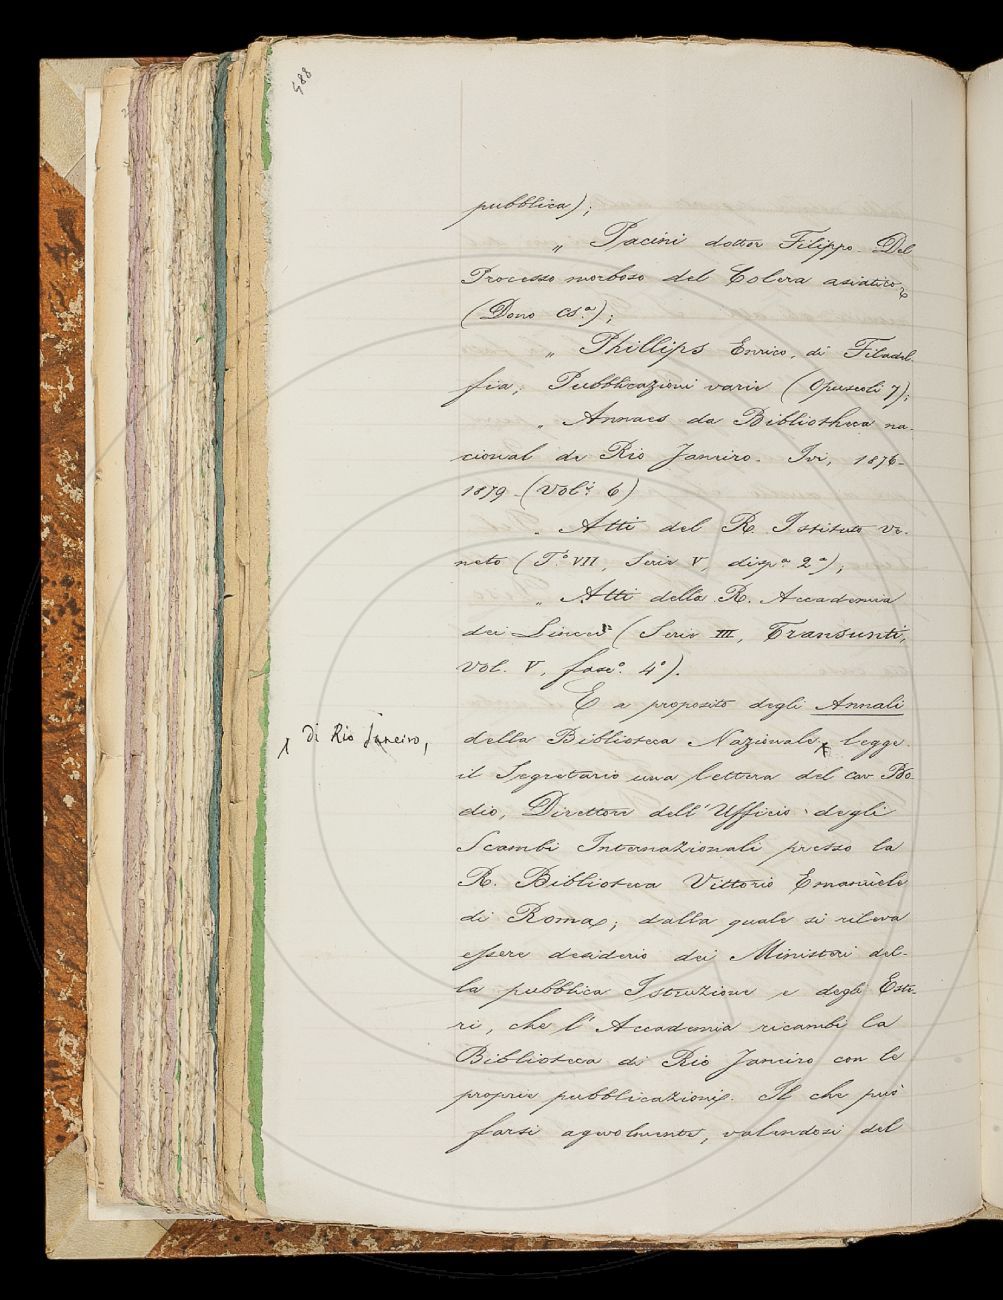 488
pubblica);
„ Pacini dottor Filippo. Del
Processo morboso del Colera asiatico
(Dono Cs.ª);
„ Phillips Enrico, di Filadel
fia; Pubblicazioni varie (Opuscoli 7);
„ Annaes da Bibliotheca na-
cional de Rio Janeiro. Ivi, 1876-
1879. (Vol.i 6)
„ Atti del R. Istituto Ve-
neto (T.º VII, Serie V, disp.ª 2ª);
„ Atti della R. Accademia
dei Lincei (Serie III, Transunti,
Vol. V, fasc.º 4º).
E a proposito degli Annali
della Biblioteca Nazionale, legge
di Rio Janeiro,
il Segretario una lettera del Cav Bo
dio, Direttore dell'Ufficio degli
Scambi Internazionali presso la
R. Biblioteca Vittorio Emanuele
di Roma; dalla quale si rileva
essere desiderio dei Ministeri del-
la pubblica Istruzione e degli Este-
ri, che l'Accademia ricambi la
Biblioteca di Rio Janeiro con le
proprie pubblicazioni. Il che può
farsi agevolmente, valendosi del